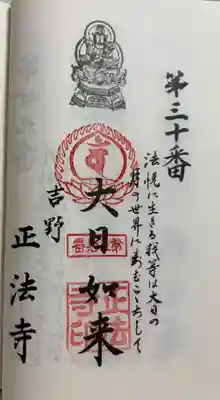 第三十番
法悦に生きる我等は大日の
智の世界にあむこゝちして
大日如来
吉野
正法寺
正法
寺印